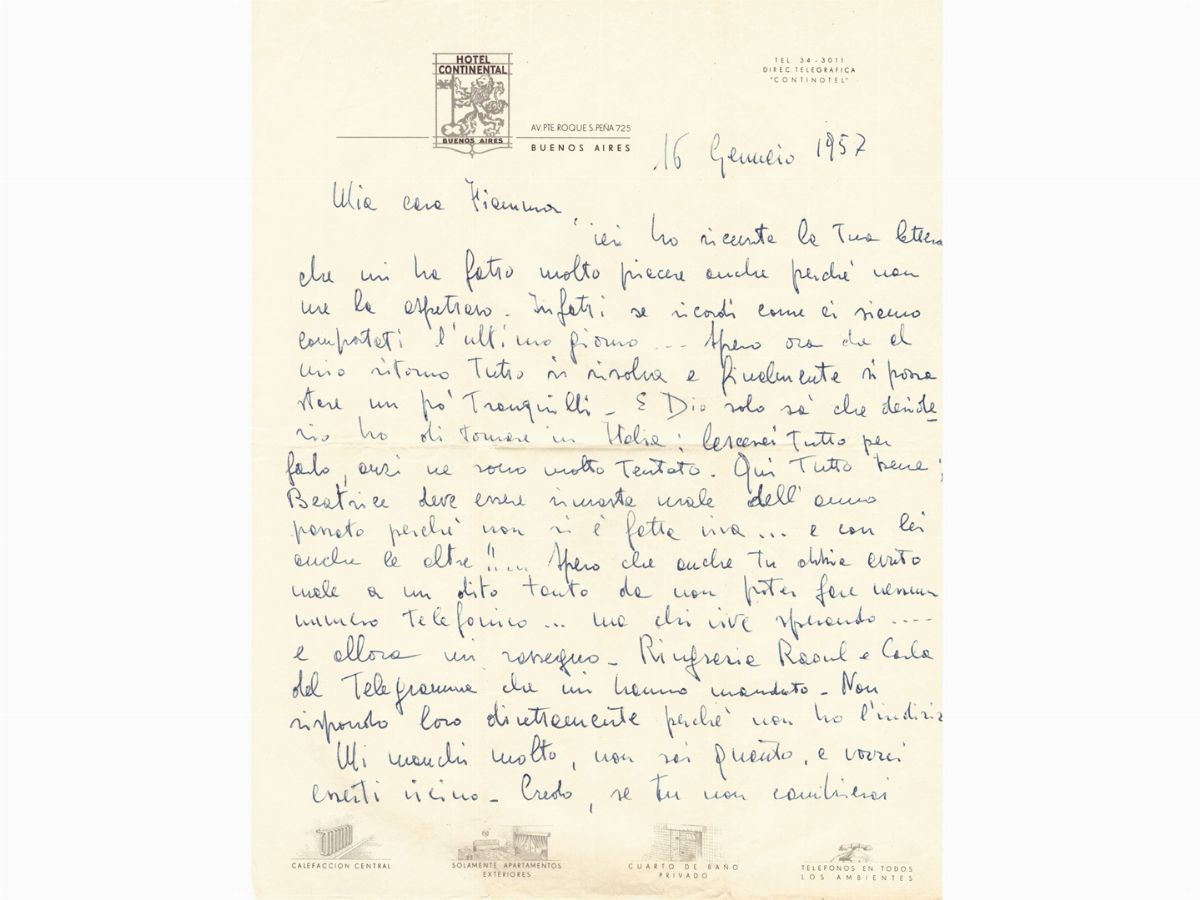 HOTEL
CONTINENTAL
BUENOS AIRES
AV. PTE. ROQUE S. PEÑA 725
BUENOS AIRES
TEL. 34-3011
DIREC. TELEGRAFICA
"CONTINOTEL"
16 Gennaio 1957
Mia cara Fiamma,
ieri ho ricevuta la Tua lettera
che mi ha fatto molto piacere anche perché non
me la aspettavo. Infatti se ricordi come ci siamo
comportati l'ultimo giorno ... Spero ora che al
mio ritorno Tutto si risolva e finalmente si possa
stare un pò Tranquilli - E Dio solo sà che deside-
rio ho di tornare in Italia; lascerei Tutto per
farlo, anzi ne sono molto Tentato. Qui Tutto bene;
Beatrice deve essere rimasta male dell'anno
passato perché non si è fatta viva ... e con lei
anche le altre!!... Spero che anche Tu abbia avuto
male a un dito tanto da non poter fare nessun
numero Telefonico ... ma chi vive sperando ....
e allora mi rassegno - Ringrazia Raoul e Carla
del Telegramma che mi hanno mandato - Non
rispondo loro direttamente perché non ho l'indiriz
Mi manchi molto, non sai Quanto, e vorrei
esserti vicino - Credo, se tu non cambierai
CALEFACCION CENTRAL
SOLAMENTE APARTAMENTOS
EXTERIORES
CUARTO DE BAÑO
PRIVADO
TELEFONOS EN TODOS
LOS AMBIENTES